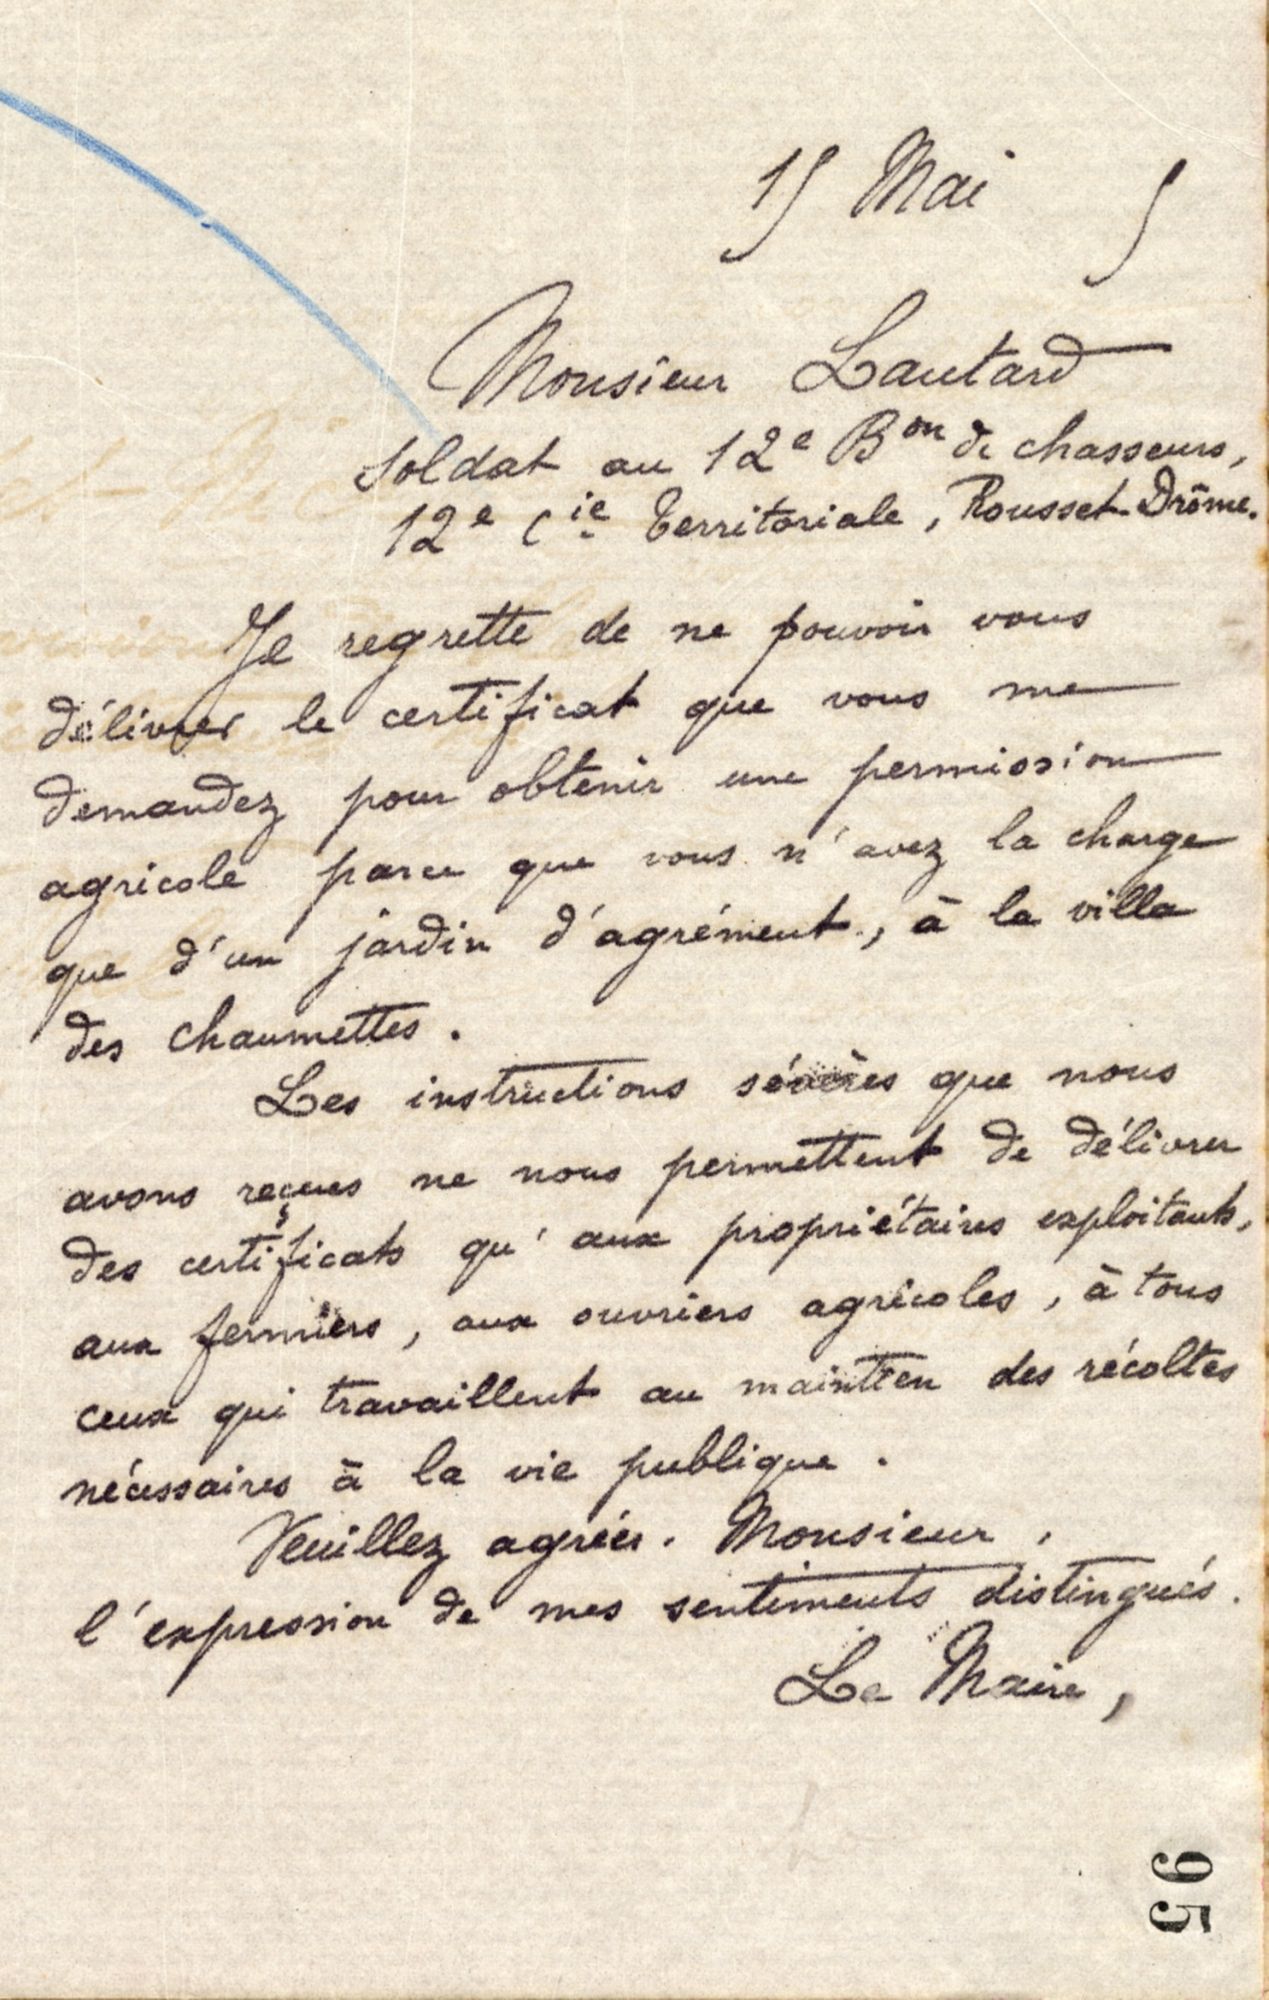 15 Mai 5
Monsieur Lautard
soldat au 12e Bon de chasseurs,
12e Cie territoriale, Rousset Drôme.
Je regrette de ne pouvoir vous
délivrer le certificat que vous me
demandez pour obtenir une permission
agricole parce que vous n'avez la charge
que d'un jardin d'agrément, à la villa
des chaumettes.
Les instructions sévères que nous
avons reçues ne nous permettent de délivrer
des certificats qu'aux propriétaires exploitants,
aux fermiers, aux ouvriers agricoles, à tous
ceux qui travaillent au maintien des récoltes
nécessaires à la vie publique.
Veuillez agréer. Monsieur,
l'expression de mes sentiments distingués.
Le Maire,
95